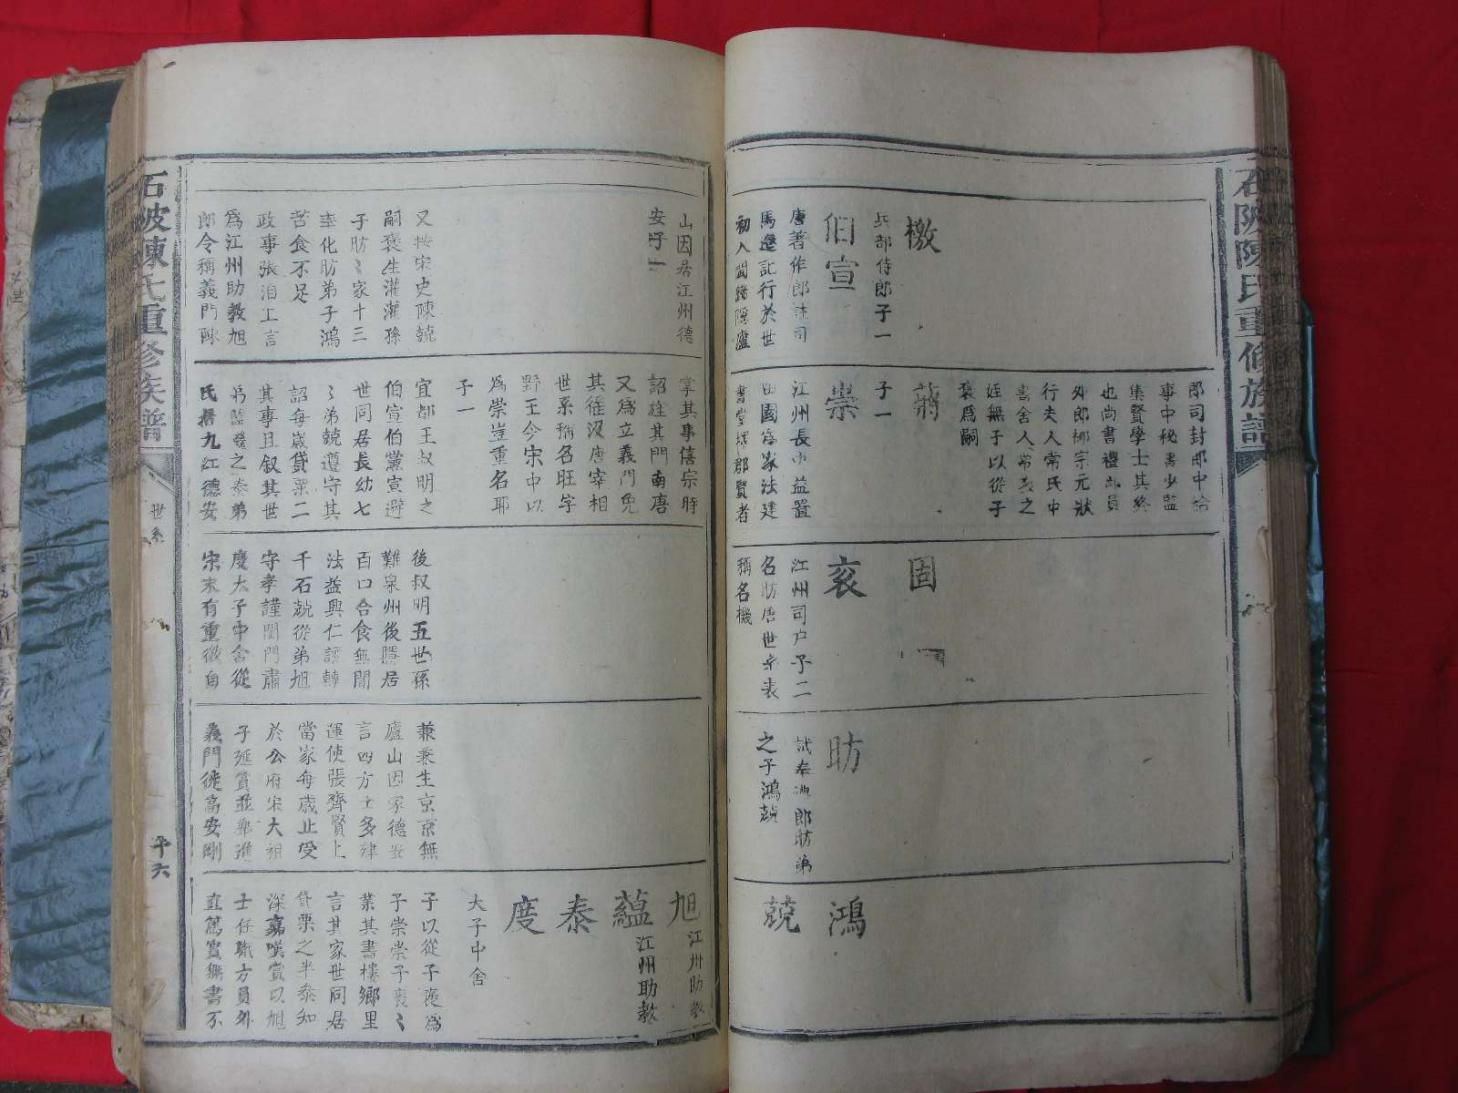 石陂陳氏重修族譜
檄
兵部侍郎子一
伯宣
唐著作郎註司
馬遷記行於世
初入閩路隱廬
郎司封郎中給
事中秘書少監
集賢學士其終
也尚書禮部員
外郎柳宗元狀
行夫人常氏中
書舍人常袞之
姪無子以從子
褒爲嗣
蔣
子一
崇
江州長史益置
田園爲家法建
書堂堲郡賢者
固
袞
江州司户子二
名昉唐世系表
稱名機
昉
試奉禮郎昉弟
之子鴻兢
鴻
兢
山因居江州德
安子一
又按宋史陳兢
嗣褒生灌灌孫
子昉昉家十三
奎化昉弟子鴻
苦食不足
政事張洎上言
爲江州助教旭
郎令稱義門陳
掌其事僖宗時
詔旌其門南唐
又爲立義門免
其徭役唐宰相
世系稱名旺字
野王今宋中以
爲崇豈重名耶
子一
宜都王叔明之
伯宣伯黨宣避
世同居長幼七
之弟兢遵守其
詔每歲貸粟二
其事且叙其世
氏搢九江德安
後叔明五世孫
難泉州後隱居
百口合食無閒
法益興仁讓轉
千石兢從弟旭
守孝謹閨門肅
慶大子中舍從
宋末有重徽自
兼兼生京京無
廬山因家德安
言四方士多肄
運使張齊賢上
當家每歲止受
於公府宋大祖
子延賞並舉進
義門徙高安剛
旭
江州助教
蘊
江州助教
泰
度
大子中舍
子以從子褒爲
子崇崇子袞〻
業其書樓鄉里
言其家世同居
貸粟之半泰知
深嘉嘆賞以旭
士任職方員外
直篤實無書不
石陂陳氏重修族譜
世系
平六